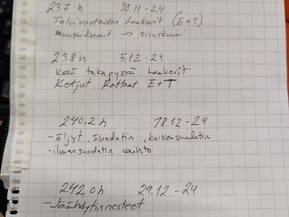 237 h 30.11-24
Talvirenteiden Laakerit (E+T)
238h 5.12-24
Kesä taka pyörä Laakerit
Ketjut Rattaat E+T
240,2h 18.12-24
- öljyt, suodatin, karkeasuodatin
- ilmansuodatin vaihto
242,0h 29.12.-24
- Jäähdytinnesteet